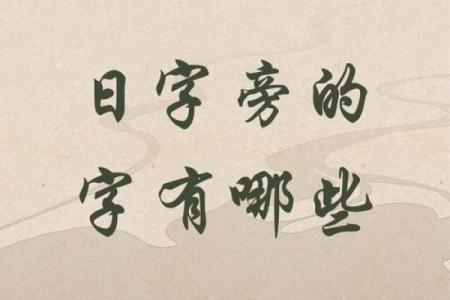 日字旁的
字有哪些